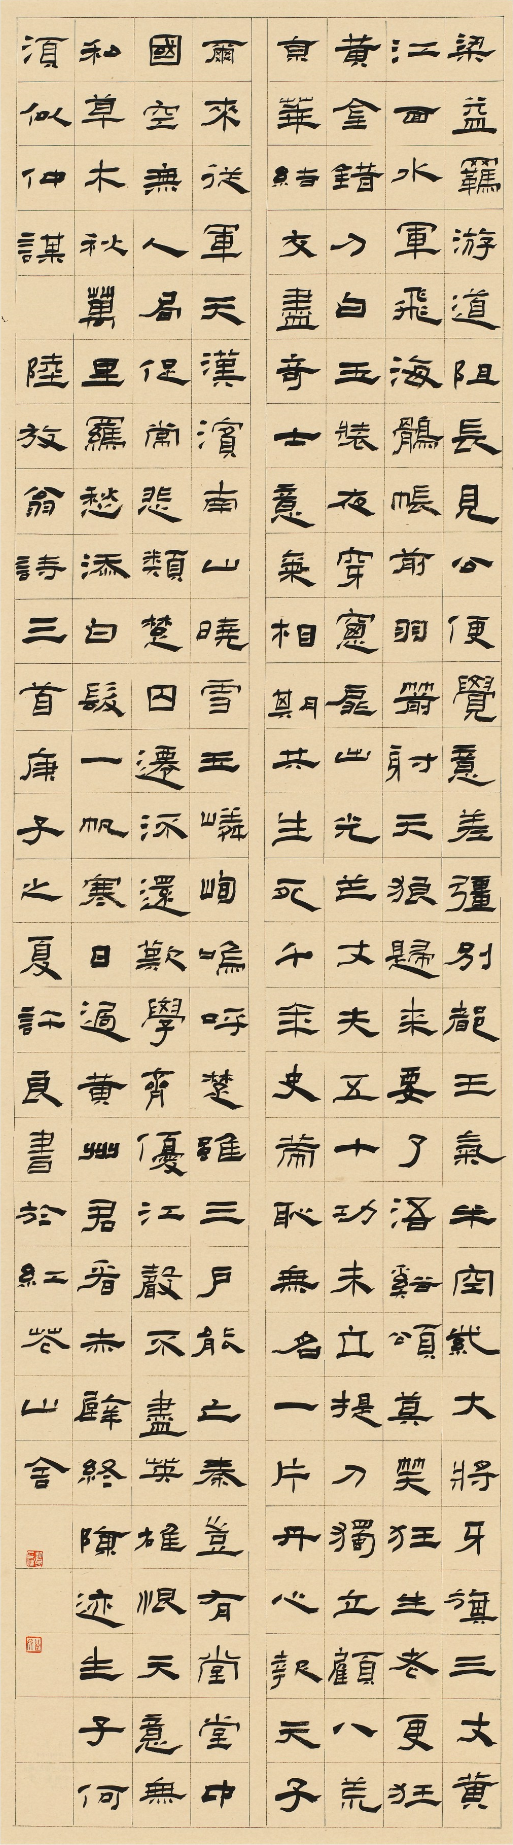 梁益羈游道阻長見公便覺意差彊別都王氣半空紫大將牙旗三丈黃
江面水軍飛海鶻帳前羽箭射天狼歸来要了浯谿頌莫笑狂生老更狂
黃金錯刀白玉裝夜穿窗扉出光芒丈夫五十功未立提刀獨立顧八荒
京華結交盡奇士意氣相期共生死千年史策恥無名一片丹心報天子
爾來從軍天漢濱南山曉雪玉嶙峋嗚呼楚雖三戶能亡秦豈有堂堂中
國空無人局促常悲類楚囚遷流還歎學齊優江聲不盡英雄恨天意無
私草木秋萬里羈愁添白髮一帆寒日過黃州君看赤壁終陳迹生子何
須似仲謀 陸放翁詩三首庚子之夏許良書於紅花山舍